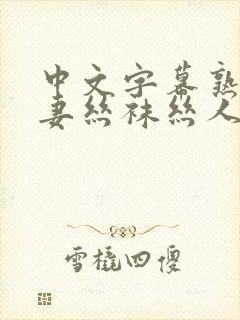 中文字幕熟
妻丝袜丝人
雪橇四傻